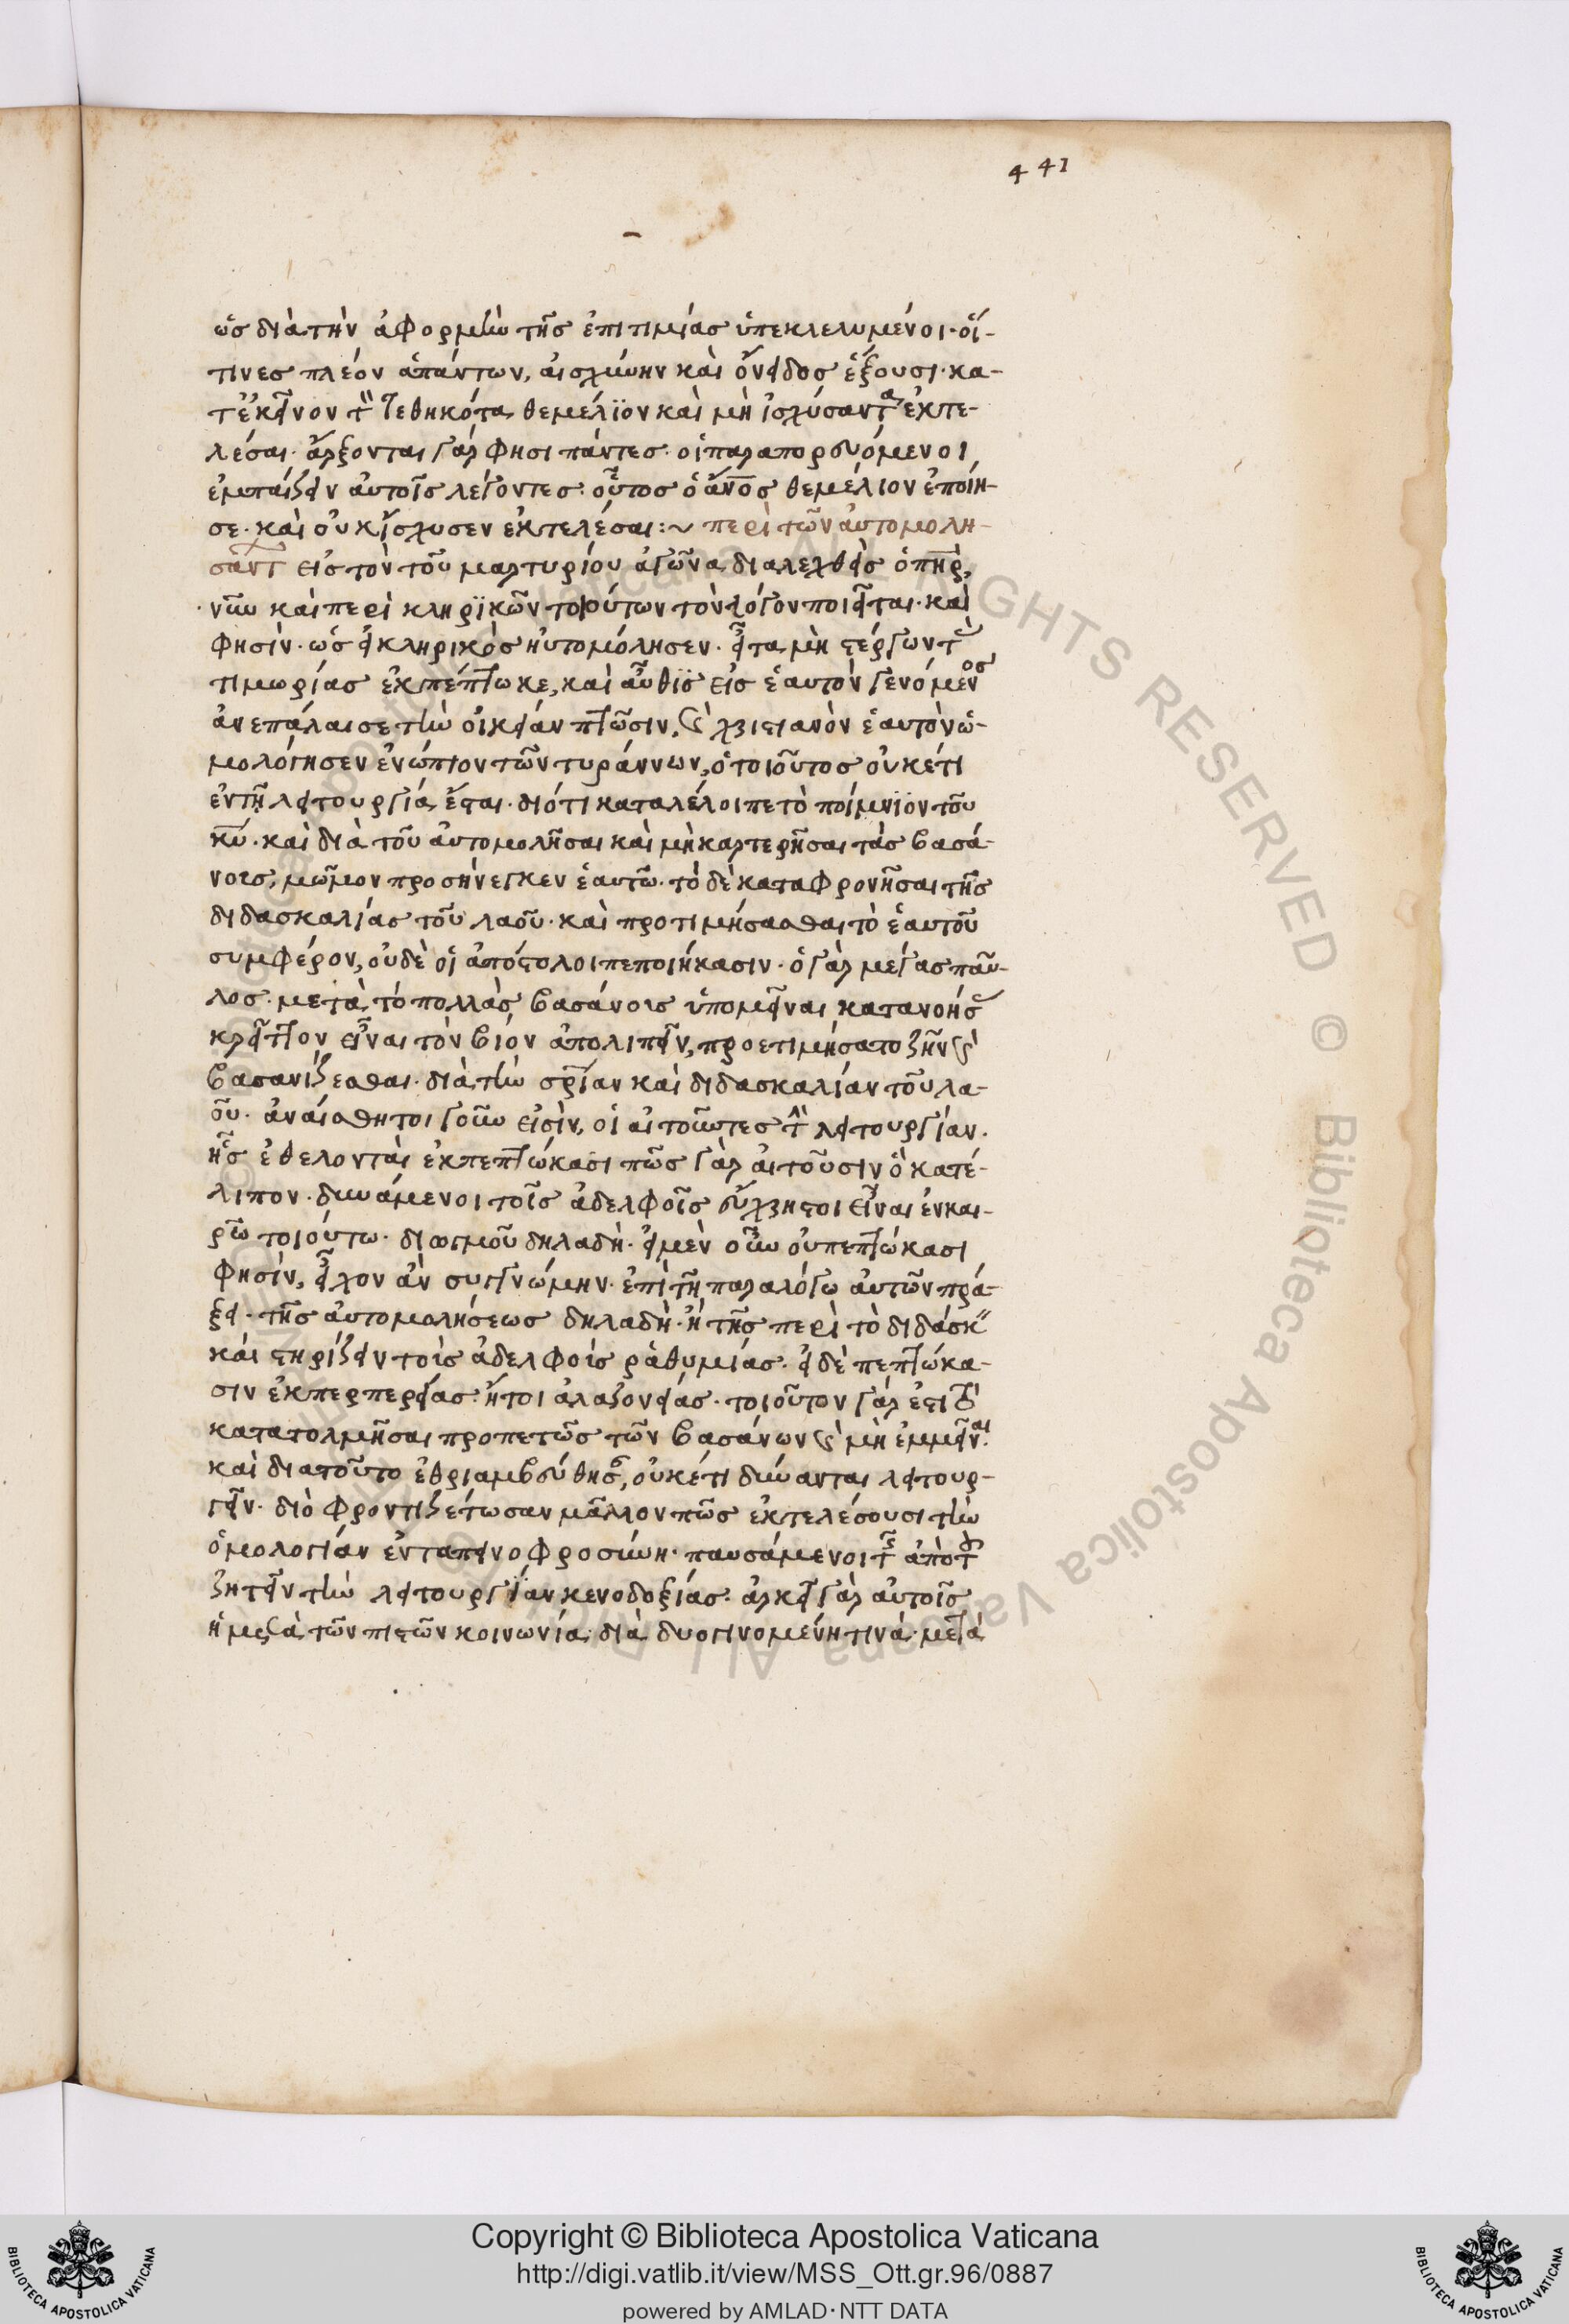 441
ὡς διὰ τὴν ἀφορμὴν τῆς ἐπιτιμίας ὑπεκλελυμένοι· οἵ-
τινες πλέον ἁπάντων, αἰσχύνην καὶ ὄνειδος ἕξουσι· κα-
τ' ἐκεῖνον τὸν τεθηκότα θεμέλϊον καὶ μὴ ἰσχύσαντα ἐκτε-
λέσαι· ἄρξονται γάρ φησι πάντες οἱ παραπορευόμενοι
ἐμπαίζειν αὐτοῖς λέγοντες· οὗτος ὁ ἄνος θεμέλιον ἐποίη-
σε· καὶ οὐκ ἴσχυσεν ἐκτελέσαι:~ περὶ τῶν αὐτομολη-
σάντ εἰς τὸν τοῦ μαρτυρίου ἀγῶνα διαλεχθεὶς ὁ πηρ,
νῦν καὶ περὶ κληρϊκῶν τοιούτων τὸν λόγον ποιεῖται· καὶ
φησὶν· ὡς εἰ κληρικὸς ηὐτομόλησεν· εἶτα μὴ στέρξων τὰς
τιμωρίας ἐκπέπτωκε, καὶ αὖθϊς εἰς ἑαυτὸν γενόμενος
ἀνεπάλαισε τὴν οἰκείαν πτῶσιν, καὶ χριστιανὸν ἑαυτὸν ὡ-
μολόγησεν ἐνώπιον τῶν τυράννων, ὁ τοιοῦτος οὐκέτι
ἐν τῇ λειτουργία ἔσται· διότι καταλέλοιπε τὸ ποίμνϊον τοῦ
κυ· καὶ διὰ τοῦ αὐτομολῆσαι καὶ μὴ καρτερῆσαι τὰς βασά-
νους, μῶμον προσήνεγκεν ἑαυτῶ· τὸ δὲ καταφρονῆσαι τῆς
διδασκαλίας τοῦ λαοῦ· καὶ προτιμήσασθαι τὸ ἑαυτοῦ
συμφέρον, οὐδὲ οἱ ἀπόστολοι πεποιήκασιν· ὁ γὰρ μέγας παῦ-
λος· μετὰ τὸ πολλὰς βασάνους ὑπομεῖναι κατανοήσας
κρεῖττον εἶναι τὸν βίον ἀπολιπεῖν, προετιμήσατο ζῆν καὶ
βασανίζεσθαι· διὰ τὴν σρίαν καὶ διδασκαλίαν τοῦ λα-
οῦ· ἀναίσθητοι γοῦν εἰσὶν, οἱ αἰτοῦντες τὴν λειτουργίαν·
ἧς ἐθελονταὶ ἐκπεπτώκασι πῶς γὰρ αἰτοῦσιν ὃ κατέ-
λιπον· δυνάμενοι τοῖς ἀδελφοῖς εὔχρηστοι εἶναι ἐν και-
ρῶ τοιούτω· διωγμοῦ δηλαδὴ· εἰ μὲν οὖν οὐ πεπτώκασι
φησὶν, εἶχον ἂν συγγνώμην· ἐπὶ τῆ παραλόγω αὐτῶν πρά-
ξει· τῆς αὐτομολήσεως δηλαδὴ· ἢ τῆς περὶ τὸ διδάσκ
καὶ στηρίζειν τοὺς ἀδελφοὺς ραθυμίας· εἰ δὲ πεπτώκα-
σιν ἐκ περπερείας· ἤτοι ἀλαζονείας· τοιοῦτον γάρ ἐστι τὸ
κατατολμῆσαι προπετῶς τῶν βασάνων καὶ μὴ ἐμμεῖναι·
καὶ διατοῦτο ἐθριαμβεύθησαν, οὐκέτι δύνανται λειτουρ-
γεῖν· διὸ φροντιζέτωσαν μᾶλλον πῶς ἐκτελέσουσι τὴν
ὁμολογίαν ἐν ταπεινοφροσύνη· παυσάμενοι τῆς ἀπὸ τοῦ
ζητεῖν τὴν λειτουργίαν κενοδοξίας· ἀρκεῖ γὰρ αὐτοῖς
ἡ μετὰ τῶν πιστῶν κοινωνία· διὰ δυο γινομένη τινά· μετὰ
Copyright © Biblioteca Apostolica Vaticana
http://digi.vatlib.it/view/MSS_Ott.gr.96/0887
powered by AMLAD·NTT DATA